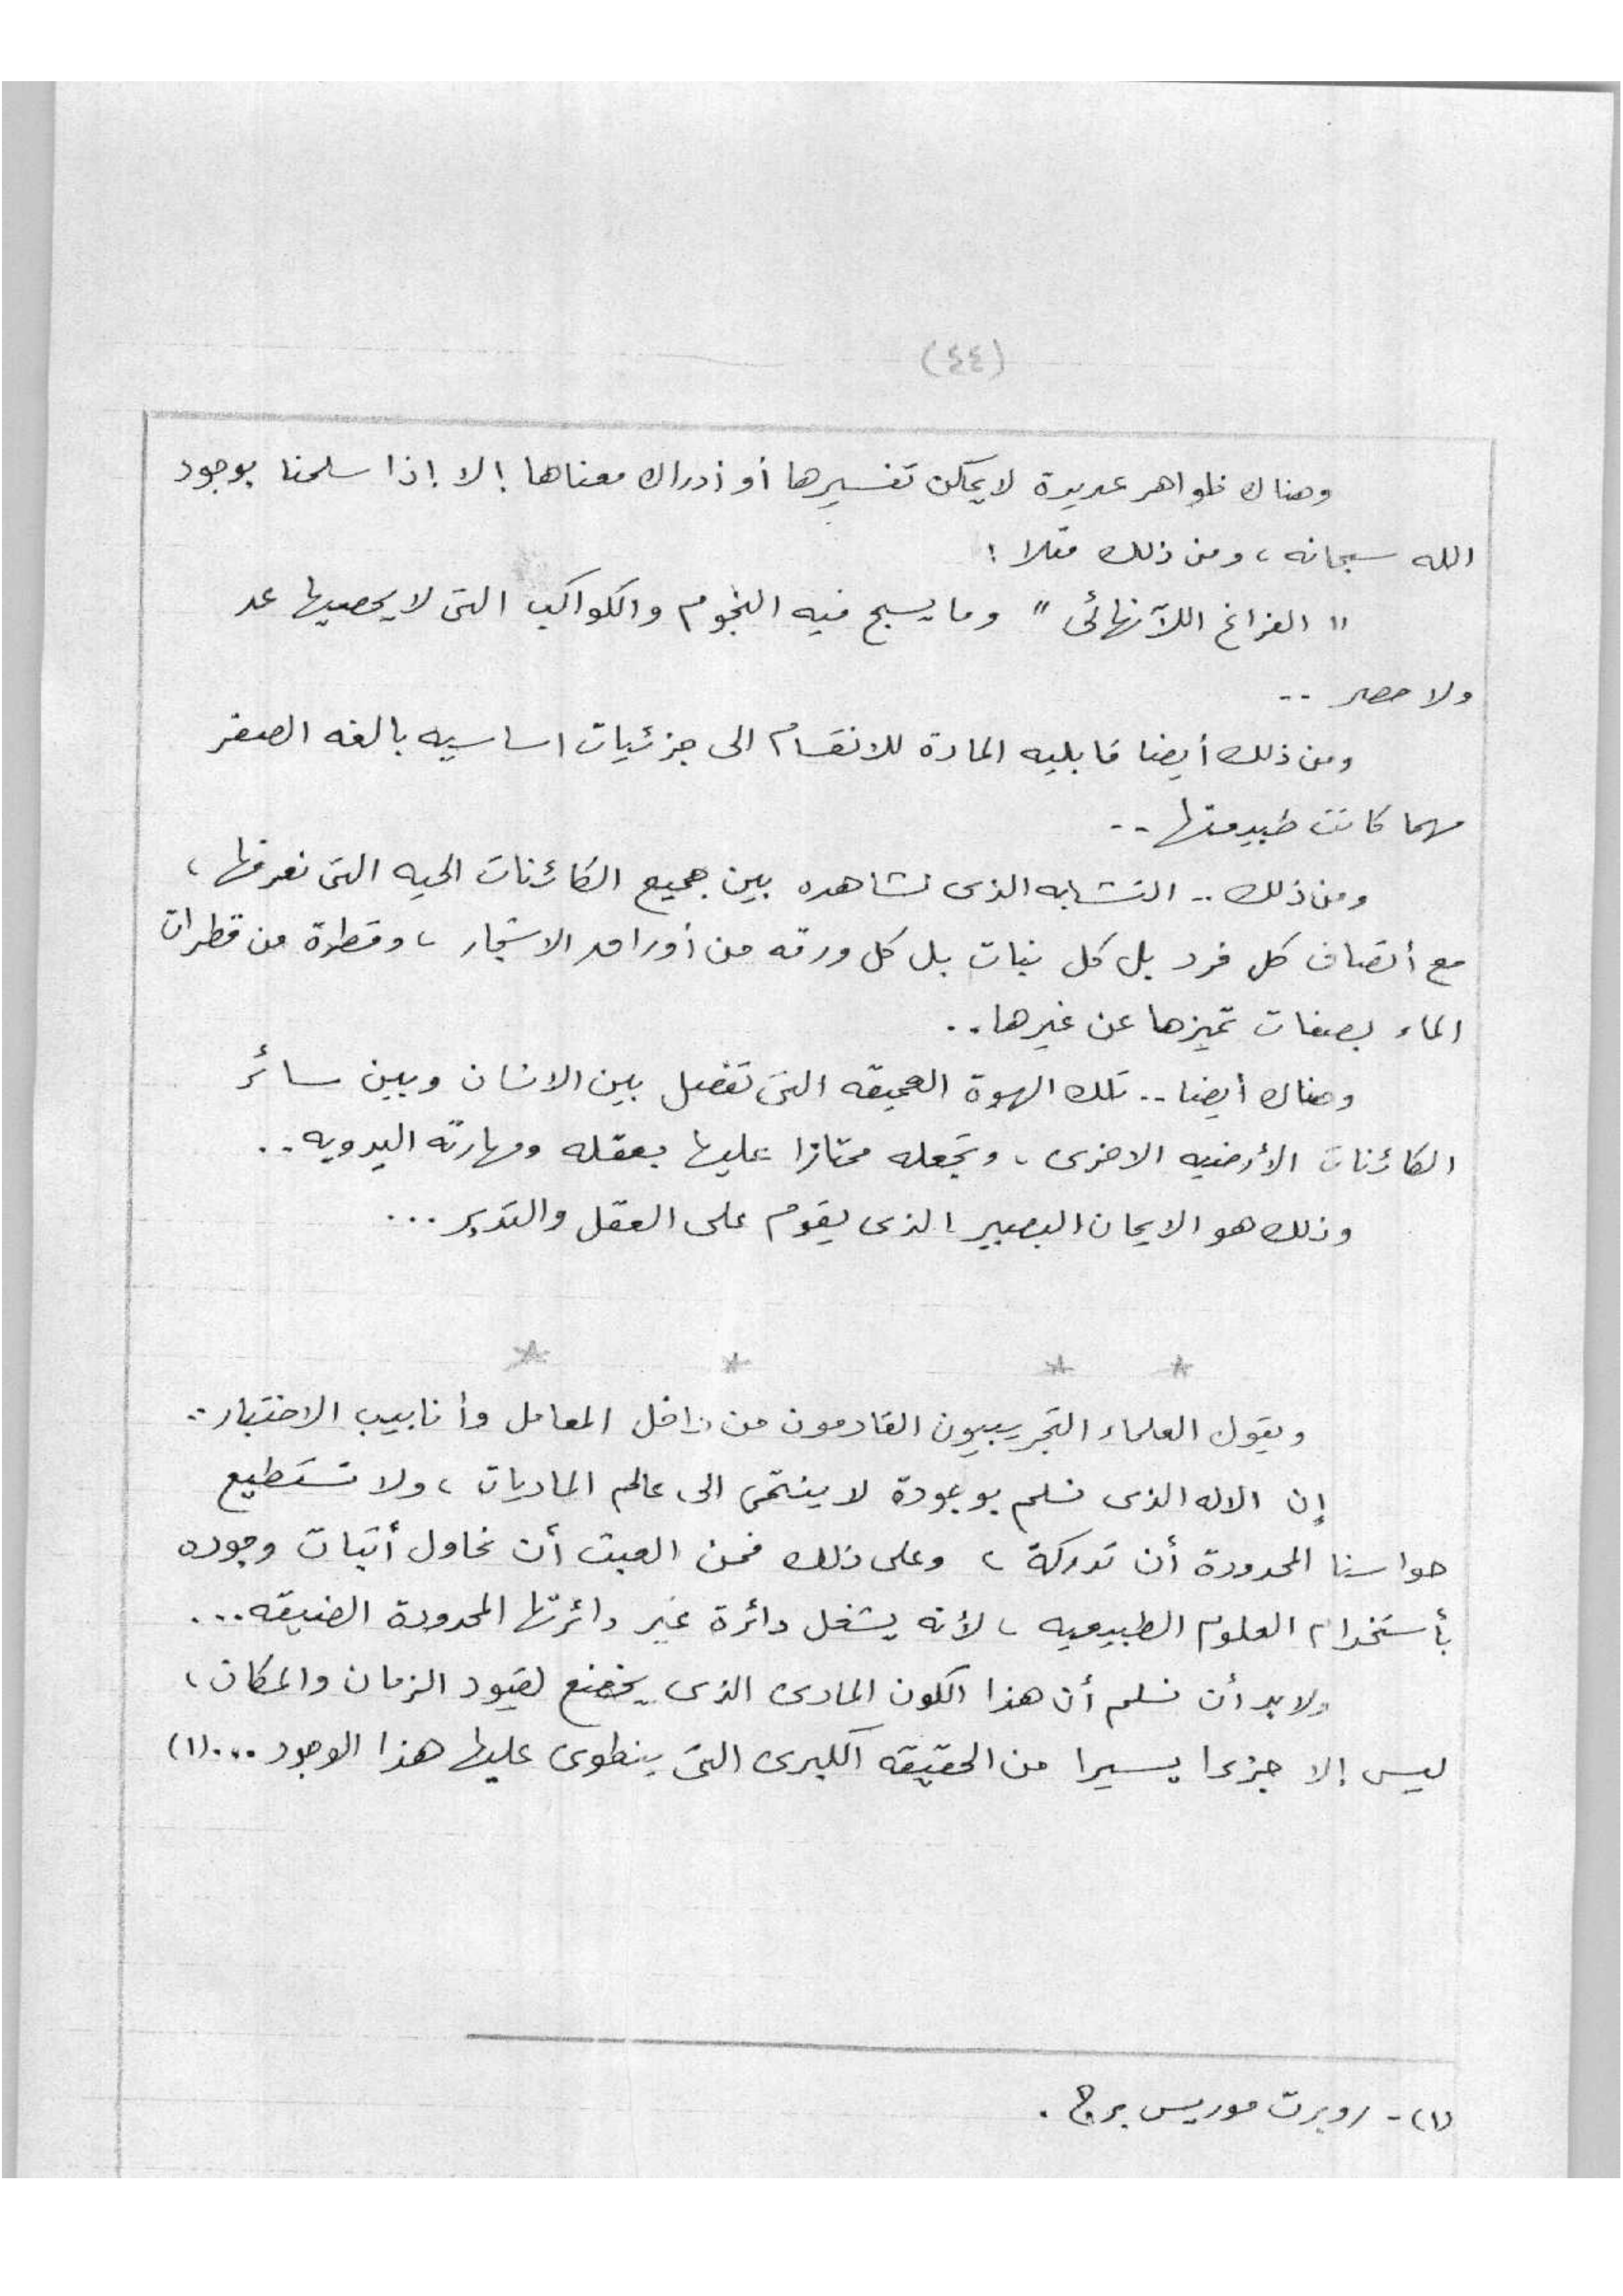 (٤٤)
وهناك ظواهر عديدة لا يمكن تفسيرها أو أدراك معناها إلا إذا سلمنا بوجود
الله سبحانه ، ومن ذلك مثلا :
" الفراغ اللآنهائى " وما يسبح فيه النجوم والكواكب التى لا يحصيها عد
ولا حصر ..
ومن ذلك أيضا قابليه المادة للانقسام الى جزئيات اساسيه بالغه الصغر
مهما كانت طبيعتها ..
ومن ذلك .. التشابه الذى نشاهده بين جميع الكائنات الحيه التى نعرفها ،
مع أتصاف كل فرد بل كل نبات بل كل ورقه من أوراق الاشجار ، وقطرة من قطرات
الماء بصفات تميزها عن غيرها ..
وهناك أيضا .. تلك الهوة العميقه التى تفصل بين الانسان وبين سائر
الكائنات الأرضيه الاخرى ، وتجعله ممتازا عليها بعقله ومهارته اليدويه ..
وذلك هو الايمان البصير الذى يقوم على العقل والتدبر ...
* * * *
ويقول العلماء التجريبيون القادمون من داخل المعامل وأنابيب الاختبار ..
إن الاله الذى نسلم بوجودة لا ينتمى الى عالم الماديات ، ولا تستطيع
حواسنا المحدودة أن تدركة ، وعلى ذلك فمن العبث أن نحاول أثبات وجوده
بأستخدام العلوم الطبيعيه ، لأنه يشغل دائرة غير دائرتها المحدودة الضيقه ...
ولابد أن نسلم أن هذا الكون المادى الذى يخضع لقيود الزمان والمكان ،
ليس إلا جزءا يسيرا من الحقيقه الكبرى التى ينطوى عليها هذا الوجود ... (١)
(١) - روبرت موريس برج .